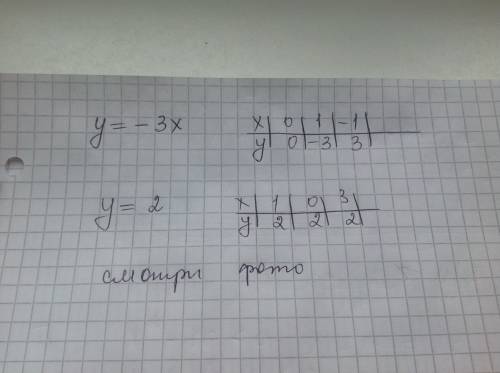 y = - 3x x | 0 | 1 | -1 |
y | 0 | -3 | 3 |
y = 2 x | 1 | 0 | 3 |
y | 2 | 2 | 2 |
смотри фото